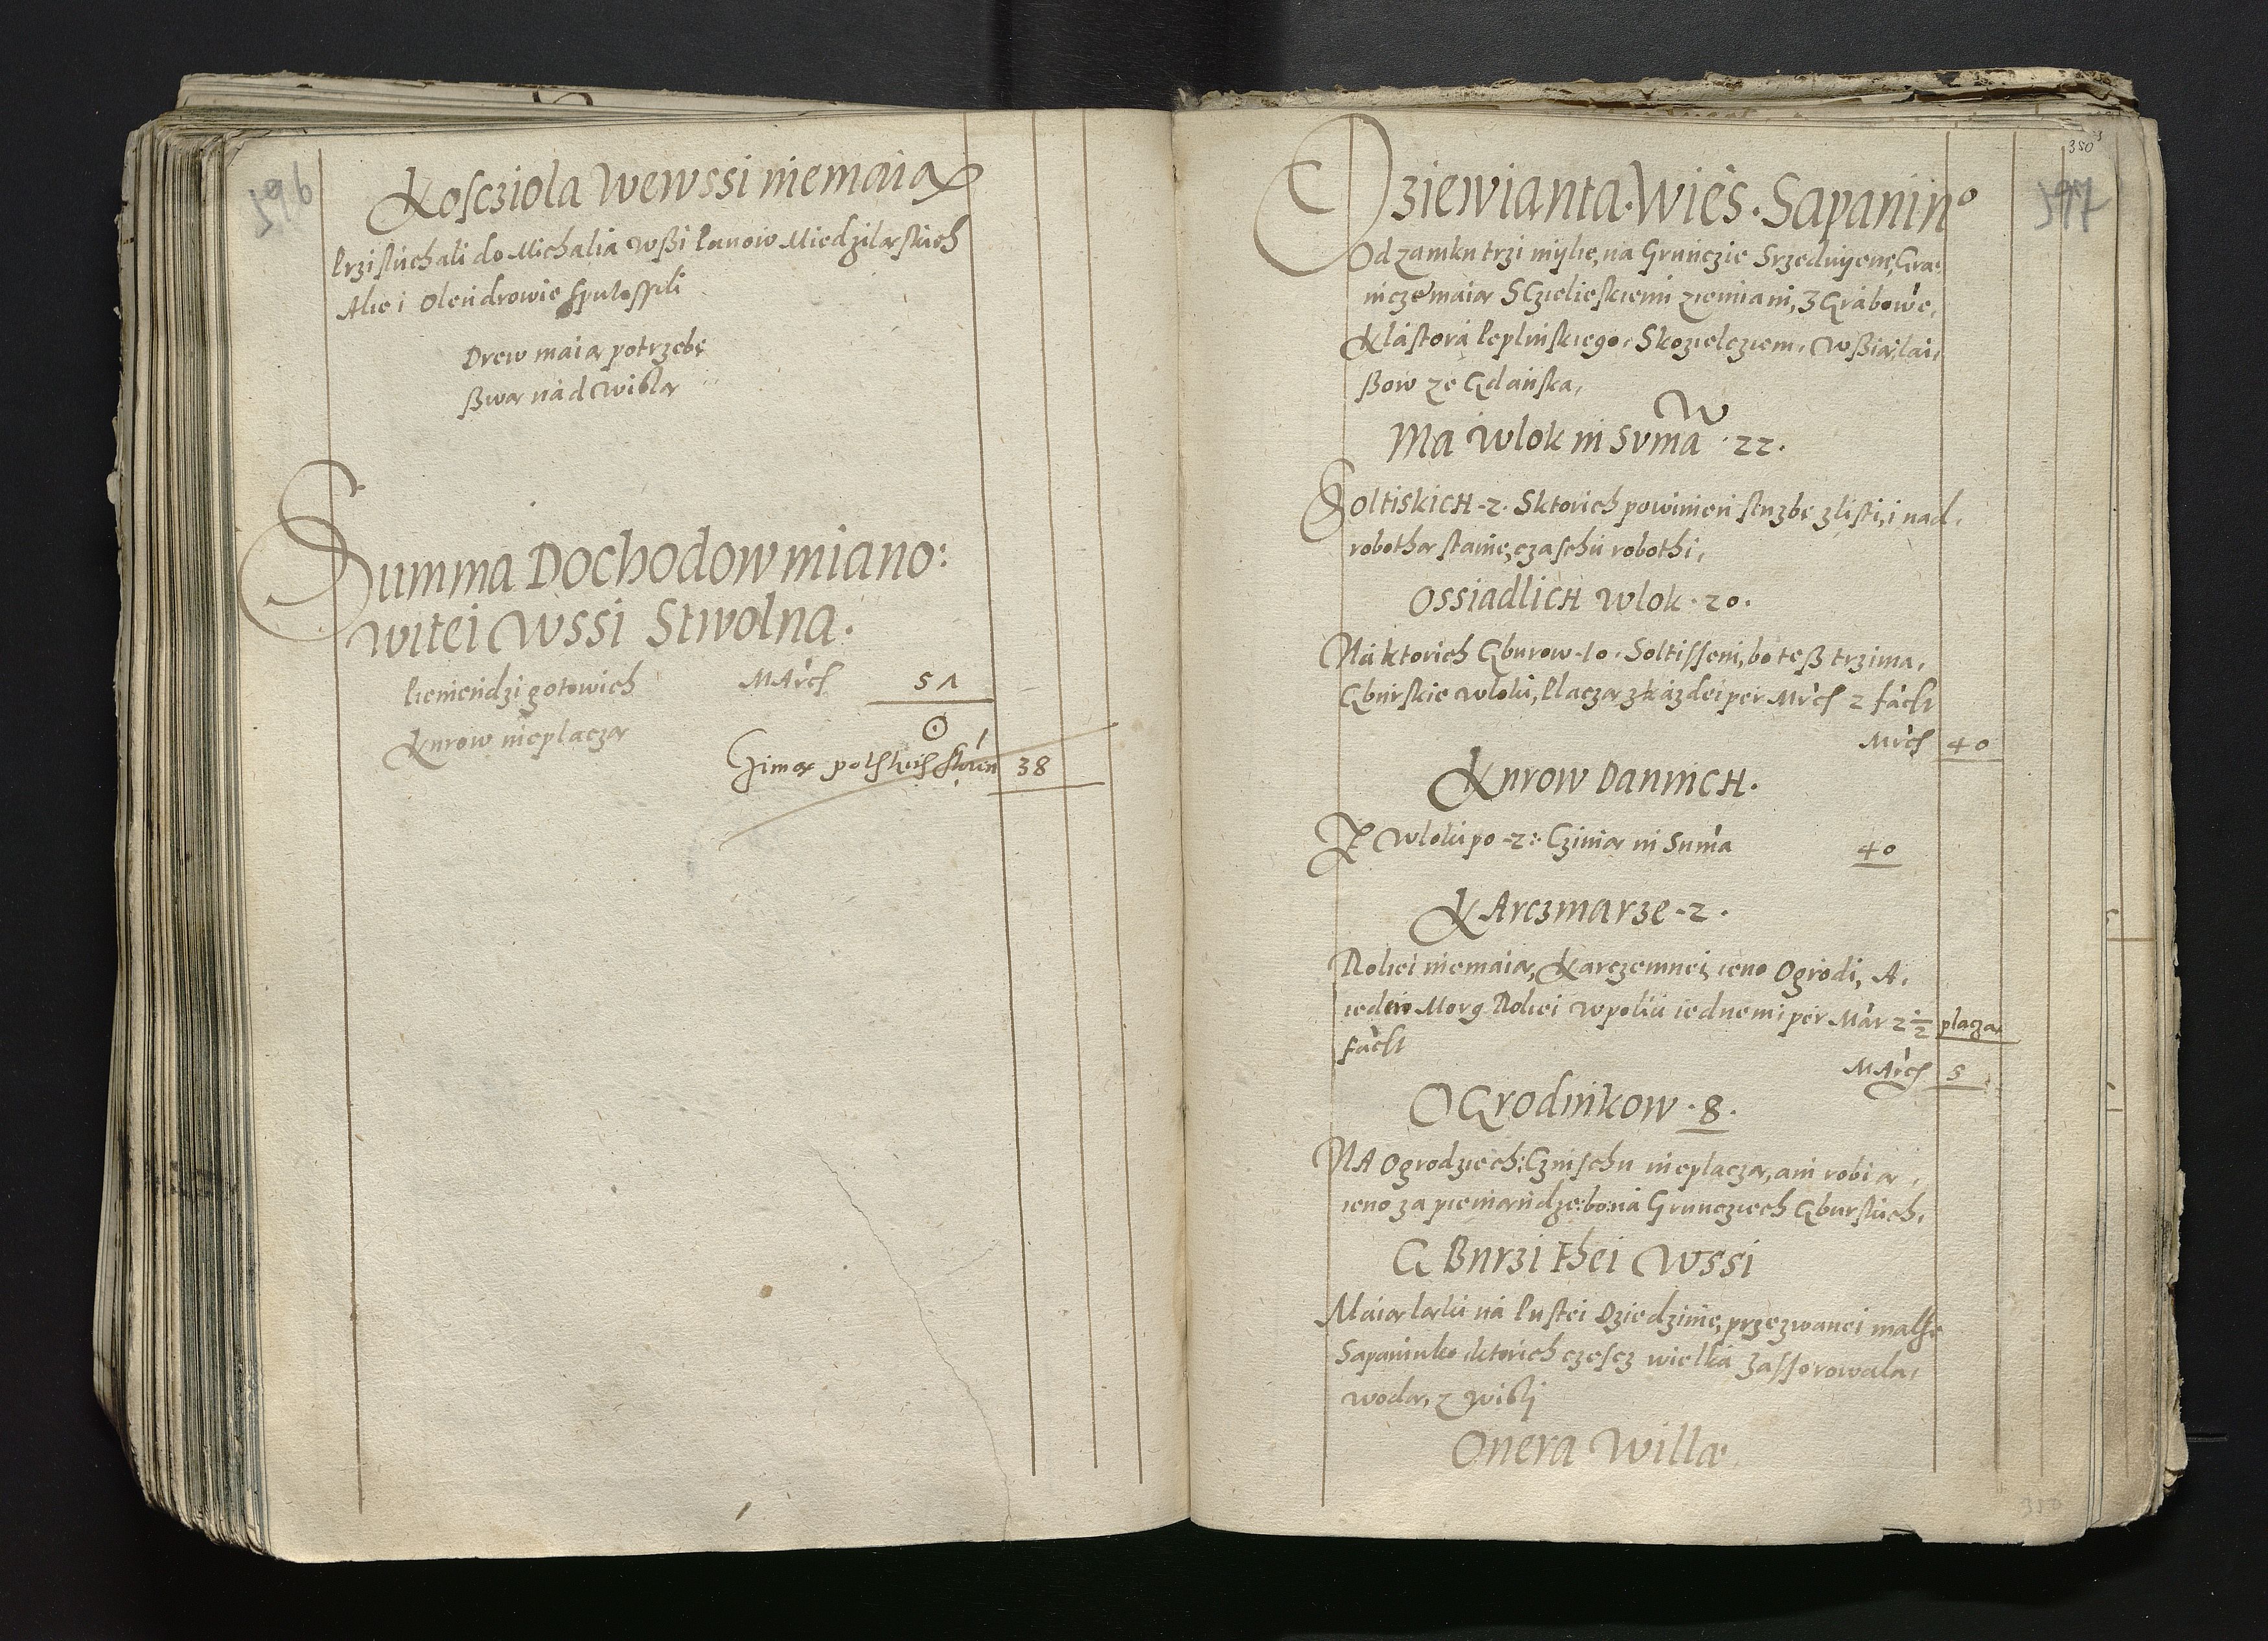 596
Kosczióla Wewssi niemaia
Przisłuchali do Michalia wßi Panow Miedzilaskich
Alie i Olendrowie spustossili
Drew maia potrzebę
ßwa nad Wisla
Summa Dochodow miano:
witei Wssi Stwolna.
Pieniendzi gotowich March 51
Kurow nieplacza ʘ
38
350
597
Dziewianta. Wies. Sapanino
Od zamku trzi mylie, na Grunczie Srzednyem, Gra,
nicze maia SCzielieskiemi ziemiani, z Grabowe,
Klastora Peplinskiego, Skozielcziem, Wßia, lai,
ßow ze Gdanska,
Ma Wlok in Suma 22.
Soltiskich -2. Sktorich powinien sluzbę zlisti, i nad,
robotha staine, czaschu robothi,
Ossiadlich Wlok. 20.
Na ktorich Gburow .10. Soltissem, bo teß trzima,
Gburskie wloki, Placza zkazdei per March 2 facit
March 40
Kurow Dannich.
Z Wloki po -2: Czinia in Suma 40
Karczmarze -2.
Roliei niemaia, Karczemnei, ieno Ogrodi, A,
iedno Morg Roliei wpoliu iednem, per Mar 2½ placza
facit
March 5
Ogrodnikow .8.
Na Ogrodziech: Czinschu nieplacza, ani robia,
ieno za pieniandze: bo na Grunciech Gburskich,
Gburzi thei Wssi
Maia laki na Pustei Dziedzinie, przezwanei malhe
Sapaninko ktorich czescz wielka zassorowala,
woda, z Wisli
Onera Willæ
350